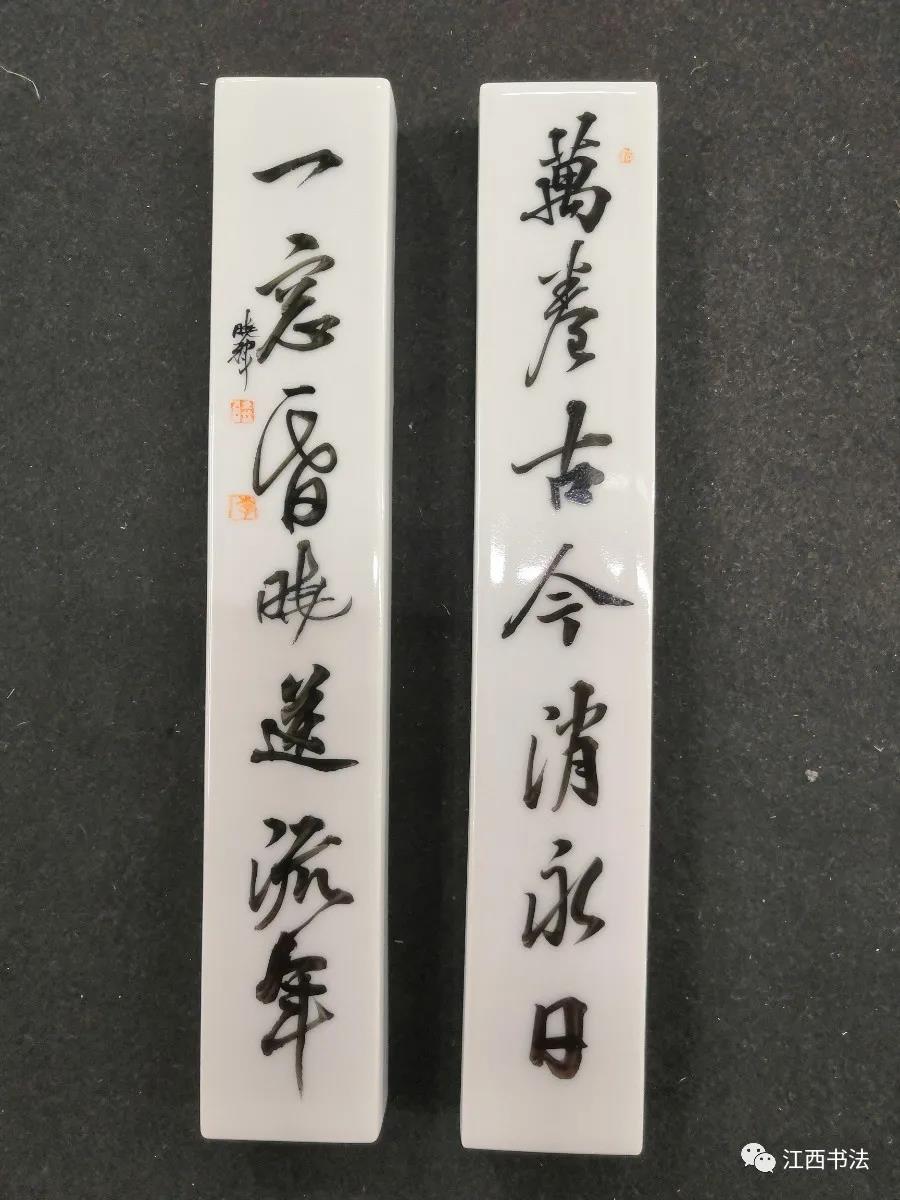 萬卷古今消永日
一窓昏曉送流年
曉輝
江西书法